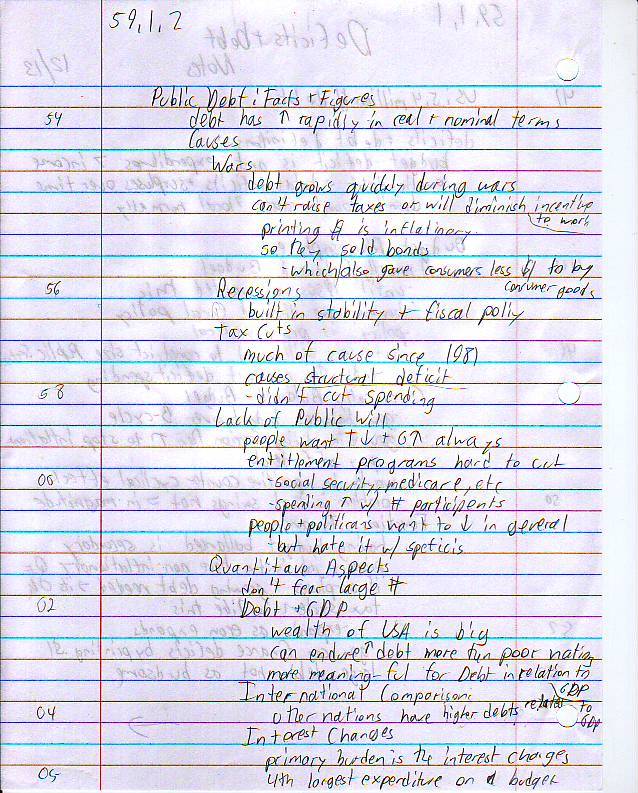 59,1,2
Public Debt: Facts + Figures
54 debt has ↑ rapidly in real + nominal terms
Causes
Wars
debt grows quickly during wars
can't raise taxes or will diminish incentive to work
printing $ is inflatinery
so they sold bonds
-which also gave consumers less $ to by consumer goods
56 Recessions
built in stability + fiscal polly
Tax Cuts
much of cause since 1981
causes structural deficit
58 -didn't cut spending
Lack of Public Will
people want T↓ + G↑ always
entitlement programs hard to cut
00 -social security, medicare, etc
-spending ↑ w/ # participents
people + politicans want to ↓ in general
-but hate it w/ speticis
Quantitave Aspects
don't fear large #
02 Debt + GDP
wealth of USA is big
can endure ↑ debt more tun poor nation
more meaning-ful for Debt in relation to GDP
International Comparison:
04 other nations have higher debts related to GDP
Interest Changes
primary burden is the interest charges
05 4th largest expenditure on budget